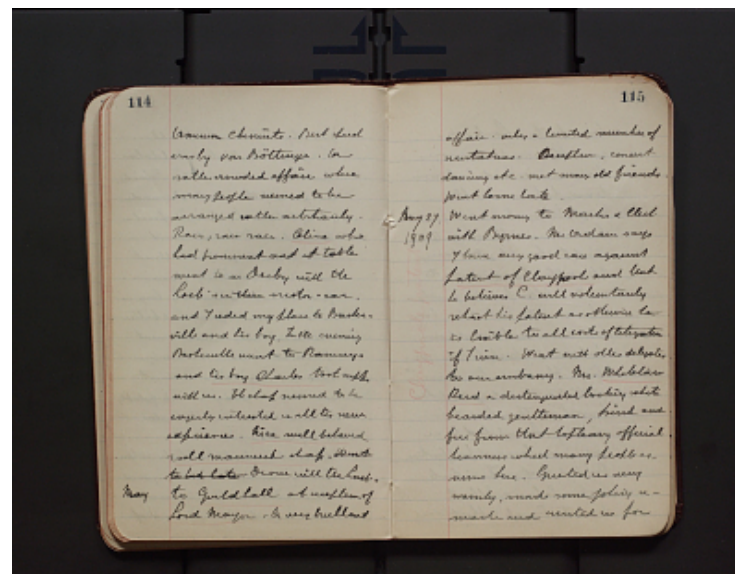 114
German Chemists. But lead
only by von Böttinger. a
rather crowded affair where
many people seemed to be
arranged rather arbitrarily.
Rain, rain rain. Céline who
had prominent seat at table
went in a Derby with the
Loeb in their motor-car.
and I ceded my place to Basker-
ville and his boy. In the evening
Baskerville went to Ramsays
and his boy Charles took
with us. The chap seemed to be
eagerly interested in all the new
experiences. Nice well behaved
well mannered chap.
to bed late Drove with the Loebs
May
to Guildhall at reception of
Lord Mayor. A very brilliant
115
affair. only a limited number of
invitations. Reception, concert
dancing etc. met many old friends.
Went home late.
May 27
1909
Went money to Marks & Clerk
with Byrnes. Mr. says
I have very good case against
patent of Claypool and that
he believes C. will voluntarily
retract his patent as otherwise he
is liable to all costs of litigation
of mine. Went with other delegates
to our embassy. Mr. Whitelaw
Reid a distinguished looking white
bearded gentleman, kind and
free from that official
which many people as-
sume here. Greeted us very
warmly, made some re-
marks and invited us for